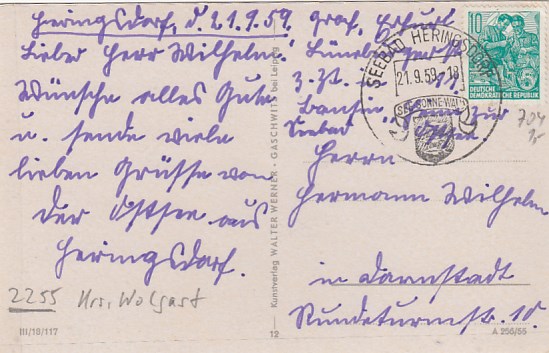 Heringsdorf, d. 21.9.59.
Lieber Herr Wilhelm!
Wünsche alles Gute
u. sende viele
lieben Grüsse von
der Ostsee aus
Heringsdorf.
2255 Krs. Wolgast
III/18/117
Kunstverlag WALTER WERNER - GASCHWITZ bei Leipzig
12
Graf, Erfurt
z. Zt.
Seebad
SEEBAD HERINGSDORF
21.9.59.-18
SEE SONNE WALD
10
DEUTSCHE
DEMOKRATISCHE REPUBLIK
704
Herrn
Hermann Wilhelm
in Darmstadt
Rundeturmstr. 10.
A 256/55